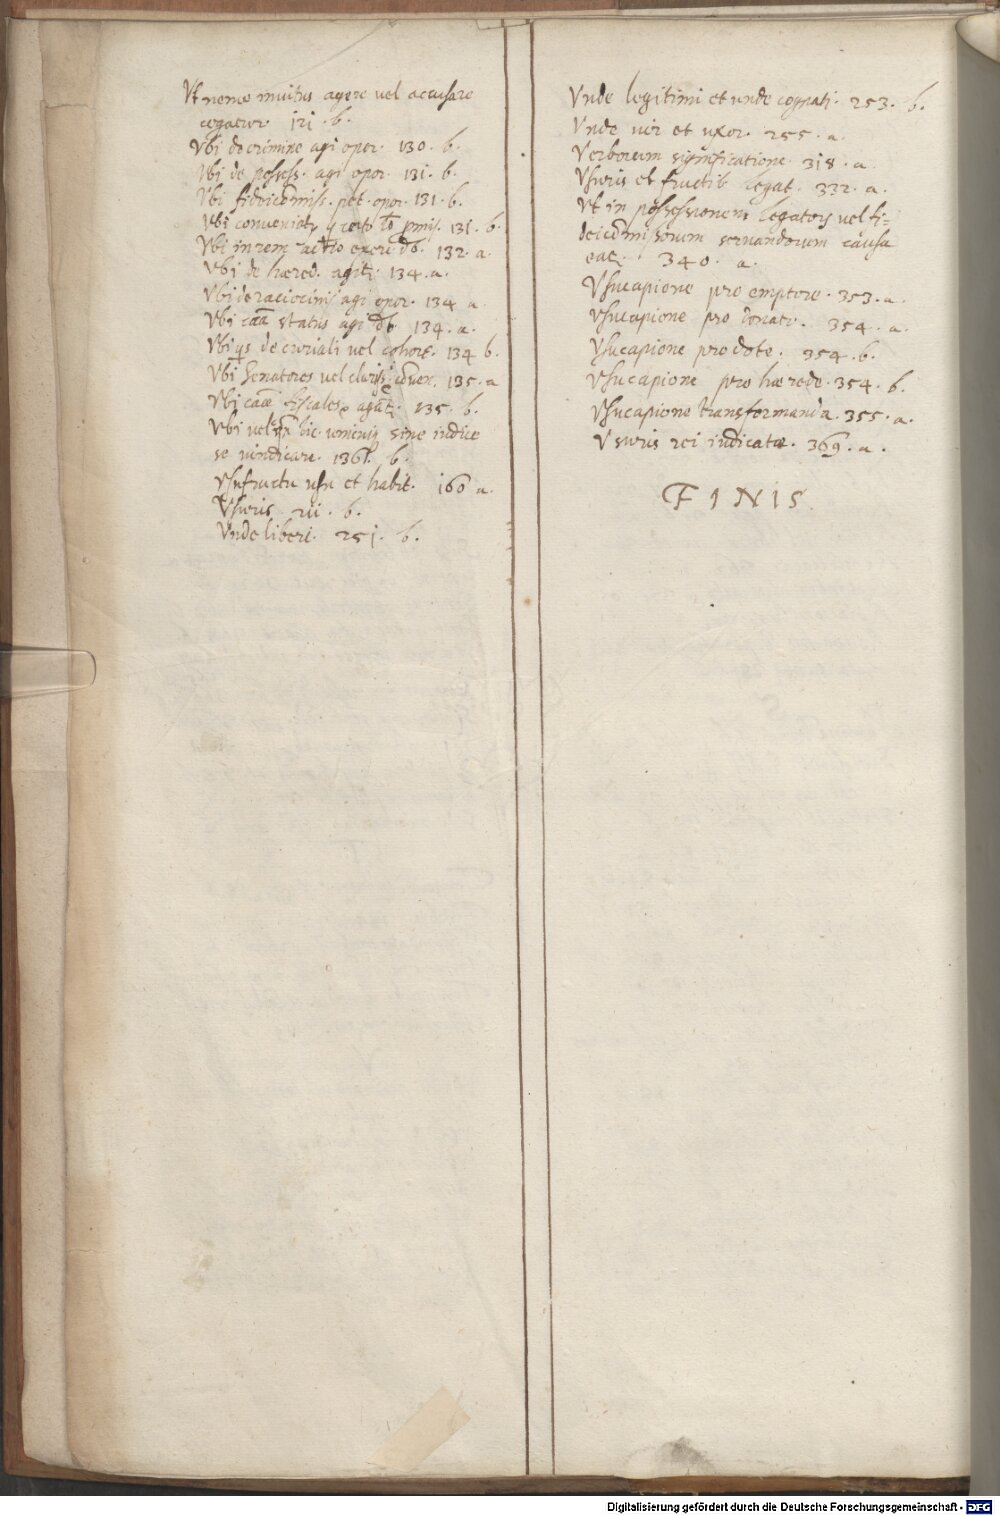 Vt nemo invitus agere vel accusare
cogatur 121. b.
Vbi de crimine agi opor. 130. b.
Vbi de possess. agi opor. 131. b.
Vbi fideicomiss. pet. opor. 131. b.
Vbi conveniat q certo lo pmis. 131. b.
Vbi in rem actio exerc. db. 132. a.
Vbi de hæred. agit. 134. a.
Vbi de raciociniis agi opor. 134 a
Vbi caa status agi db. 134. a.
Vbi qs de curiali vel cohort. 134 b.
Vbi Senatores vel clariss. conven. 135. a
Vbi caæ fiscales agat. 135. b.
Vbi vel sine iudice
se vindicare. 136. b.
Vsufructu usu et habit. 160 a.
Vsuris 211. b.
Vnde liberi. 251. b.
Vnde legitimi et unde cognati. 253. b.
Vnde vir et uxor. 255. a.
Verborum significatione. 318. a.
Vsuris et fructib legat. 332. a.
Vt in possessionem legatorz vel fi=
deicomissorum servandorum causa
eat. 340. a.
Vsucapione pro emptore. 353. a.
Vsucapione pro donato. 354. a.
Vsucapione pro dote. 354. b.
Vsucapione pro hærede. 354. b.
Vsucapione transformanda. 355. a.
Vsuris rei iudicatæ. 369. a.
FINIS
Digitalisierung gefördert durch die Deutsche Forschungsgemeinschaft - DFG